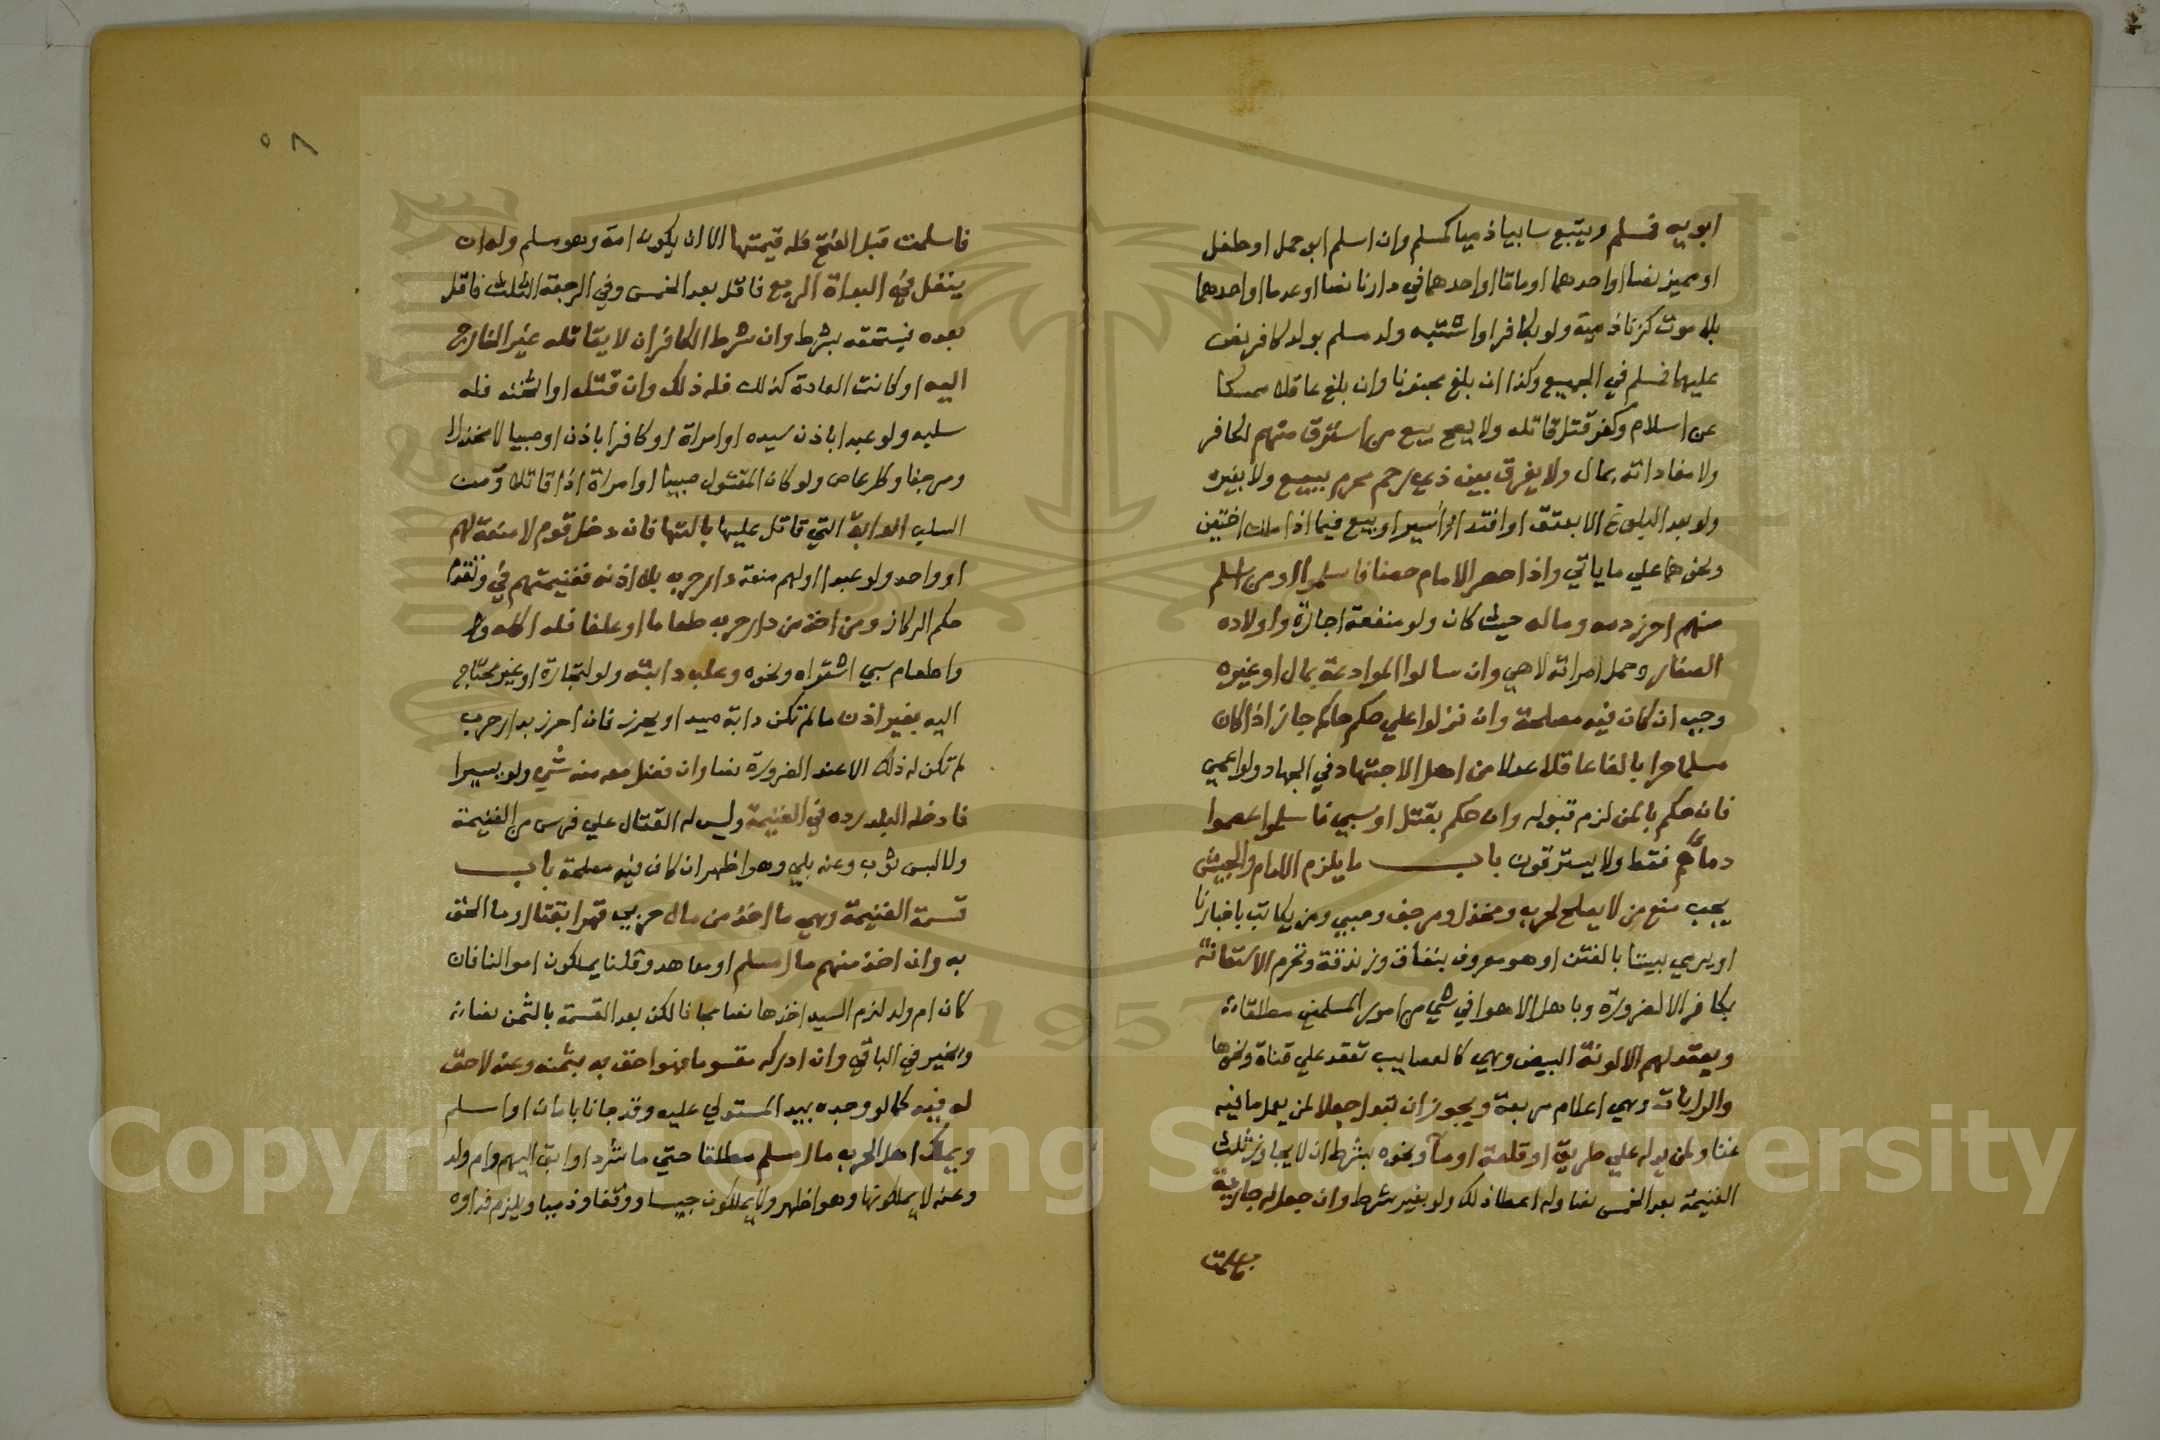 ابويه فمسلم ويتبع سابيا ذميا كمسلم وان اسلم ابو حمل او طفل
او مميز نصا او احدهما او ماتا او احدهما في دارنا نصا او عدما او احدهما
بلا موت كزنا ذمية ولو بكافر او اشتبه ولد مسلم بولد كافر نص
عليهما فمسلم في الجميع وكذا ان بلغ مجنونا وان بلغ عاقلا ممسكا
عن اسلام وكفر قتل قاتله ولا يصح بيع من استرق منهم لكافر
ولا مفاداته بمال ولا يفرق بين ذي رحم محرم ببيع ولا بغيره
ولو بعد البلوغ الا بعتق او افتداء اسير او بيع فيما اذا ملك اختين
ونحوهما علي ما ياتي واذا حصر الامام حصنا فاسلموا او من اسلم
منهم احرز دمه وماله حيث كان ولو منفعة اجارة واولاده
الصغار وحمل امراته لا هي وان سالوا الموادعة بمال او غيره
وجب ان كان فيه مصلحة وان نزلوا علي حكم حاكم جاز اذا كان
مسلما حرا بالغا عاقلا عدلا من اهل الاجتهاد في الجهاد ولو اعمي
فان حكم بالمن لزم قبوله وان حكم بقتل او سبي فاسلموا عصموا
دماءهم فقط ولا يسترقون باب ما يلزم الامام والجيش
يجب منع من لا يصلح لحرب ومخذل ومرجف وصبي ومن يكاتب باخبارنا
او يرمي بيننا بالفتن او هو معروف بنفاق وزندقة وتحرم الاستعانة
بكافر الا لضرورة وباهل الاهوا في شي من امور المسلمين مطلقا
ويعقد لهم الالوية البيض وهي كالعصايب تعقد علي قناة ونحوها
والرايات وهي اعلام مربعة ويجوز ان يبذل جعلا لمن يعمل ما فيه
غنا ولمن يدله علي طريق او قلعة او ماء ونحوه بشرط ان لا يجاوز ثلث
الغنيمة بعد الخمس نصا وله اعطا ذلك ولو بغير شرط وان جعل له جارية
فاسلمت
٥٦
فاسلمت قبل الفتح فله قيمتها الا ان يكون امة وهو مسلم وله ان
ينفل في البداة الربع فاقل بعد الخمس وفي الرجعة الثلث فاقل
بعده يستحقه بشرط وان شرط الكافر ان لا يقاتله غير الخارج
اليه او كانت العادة كذلك فله ذلك وان قتله او اثخنه فله
سلبه ولو عبدا باذن سيده او امراة او كافرا باذن او صبيا لا مخذلا
ومرجفا وكل عاص ولو كان المقتول صبيا او امراة اذا قاتلا ومن
السلب الدابة التي قاتل عليها بالتها فان دخل قوم لا منعة لهم
او واحد ولو عبدا او لهم منعة دار حرب بلا اذنه فغنيمتهم في وتقدم
حكم الركاز ومن اخذ من دار حرب طعاما او علفا فله اكله
واطعام سبي اشتراه ونحوه وعلف دابته ولو لتجارة او غير محتاج
اليه بغير اذن ما لم تكن دابة صيد او يحرز فان احرز بدار حرب
لم تكن له ذلك الا عند الضرورة نصا وان فضل معه منه شي ولو يسيرا
فادخله البلد رده في الغنيمة وليس له القتال علي فرس من الغنيمة
ولا لبس ثوب وعنه بلي وهو اظهر ان كان فيه مصلحة باب
قسمة الغنيمة وهي ما اخذ من مال حربي قهرا بقتال وما الحق
به وان اخذ منهم مال مسلم او معاهد وقلنا يملكون اموالنا فان
كان ام ولد لزم السيد اخذها نصا مجانا لكن بعد القسمة بالثمن نصا
ويخير في الباقي وان ادركه مقسوما فهو احق به بثمنه وعنه لا حق
له فيه كما لو وجده بيد المستولي عليه وقد جانا بامان او اسلم
ويملك اهل الحرب مال مسلم مطلقا حتي ما شرد او ابق اليهم وام ولد
وعنه لا يملكونها وهو اظهر ولا يملكون حبيسا ووقفا وذميا ويلزم فداوه
Copyright © King Saud University
1957